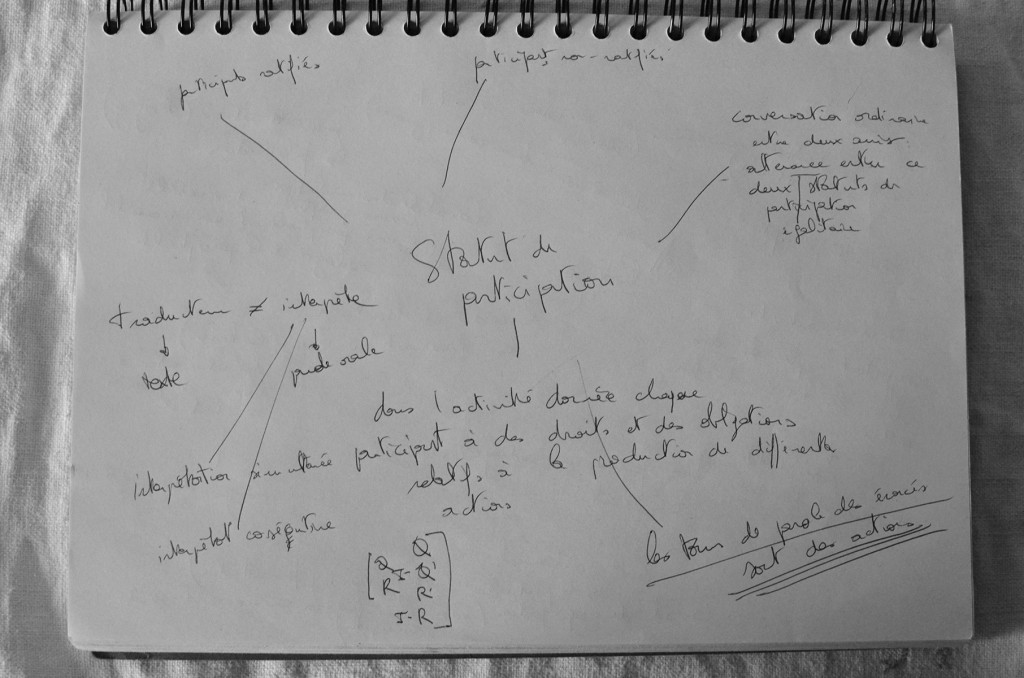 participants ratifiés
participants non-ratifiés
conversation ordinaire
entre deux amis
alternance entre ce
deux statuts de
participation
égalitaire
Statut de
participation
traducteur ≠ interprète
texte
parole orale
dans l'activité donnée chaque
participant à des droits et des obligations
relatifs à la production de différents
actions
interprétation simultanée
interprétat consécutive
les tours de parole des énoncés
sont des actions
Q
Q I-Q'
R R'
I-R